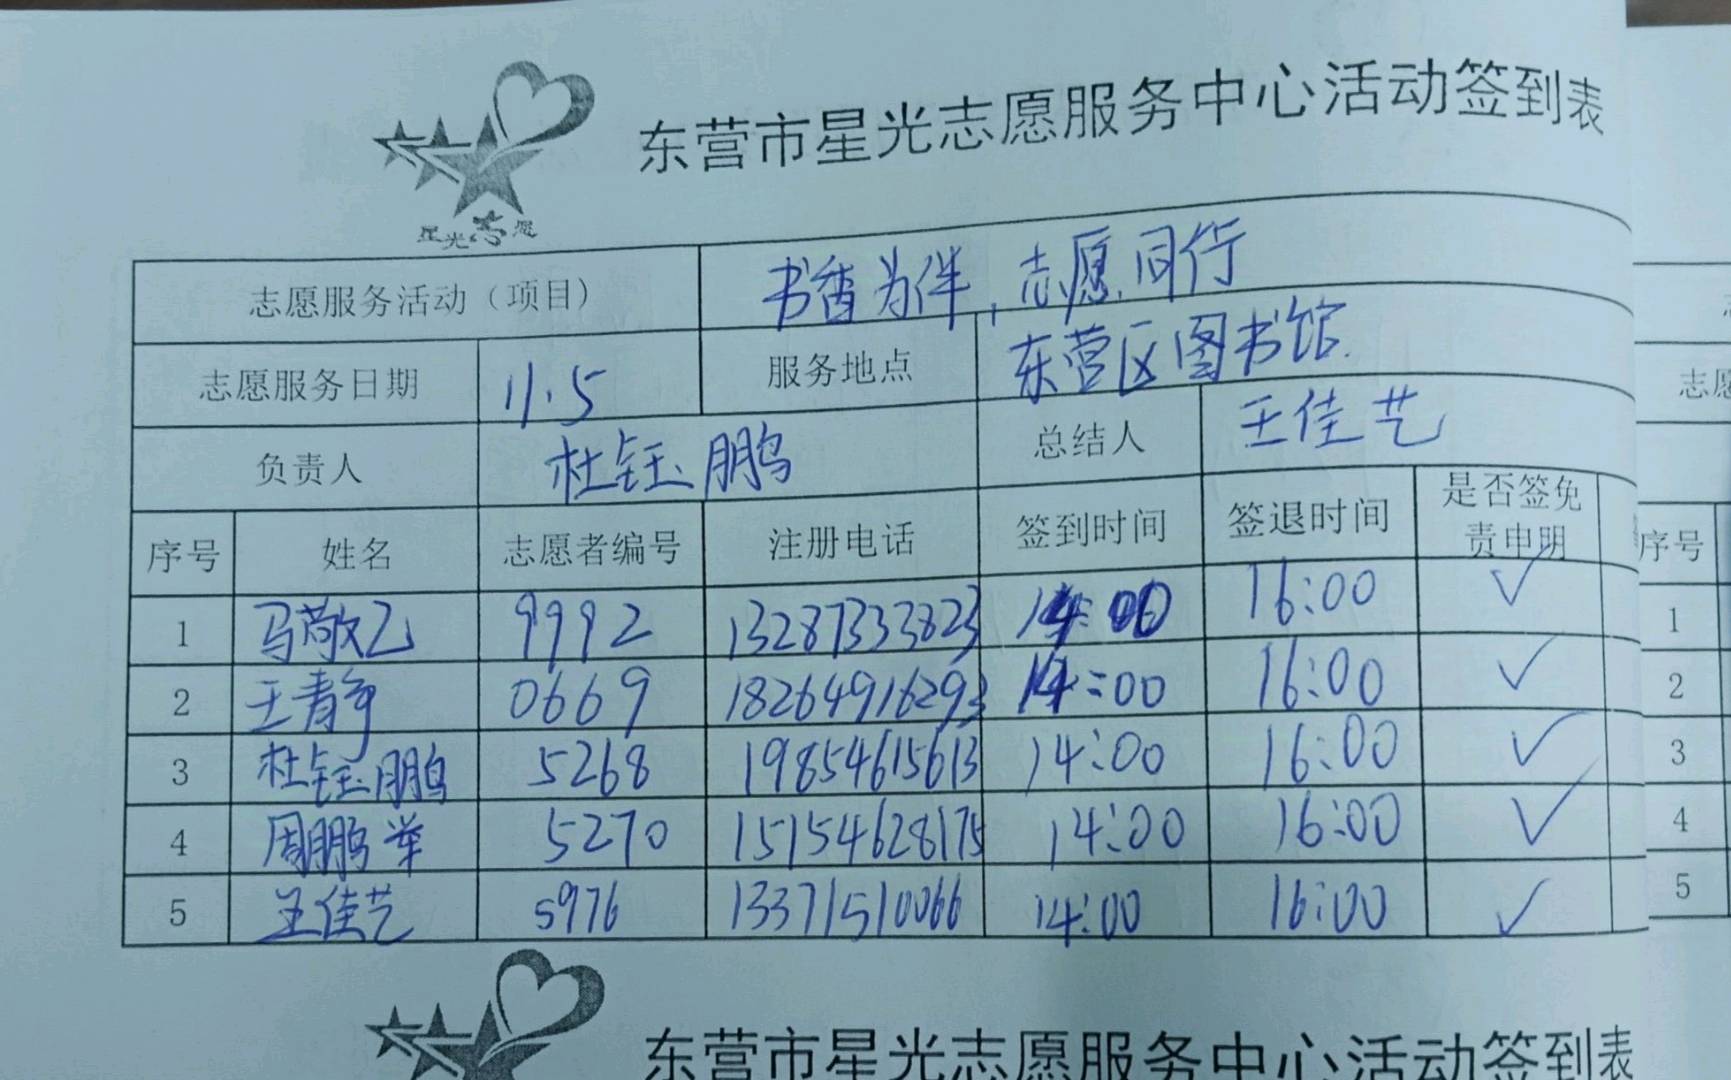 东营市星光志愿服务中心活动签到表
星光志愿
志愿服务活动（项目） 书香为伴，志愿同行
志愿服务日期 11.5 服务地点 东营区图书馆.
负责人 杜钰鹏 总结人 王佳艺
序号 姓名 志愿者编号 注册电话 签到时间 签退时间 是否签免责申明
1 马敬乙 9992 13287333823 14:00 16:00 ✓
2 王青争 0669 18264916293 14:00 16:00 ✓
3 杜钰鹏 5268 19854615613 14:00 16:00 ✓
4 周鹏举 5270 15154628175 14:00 16:00 ✓
5 王佳艺 5976 13371510066 14:00 16:00 ✓
志愿
序号
1
2
3
4
5
东营市星光志愿服务中心活动签到表